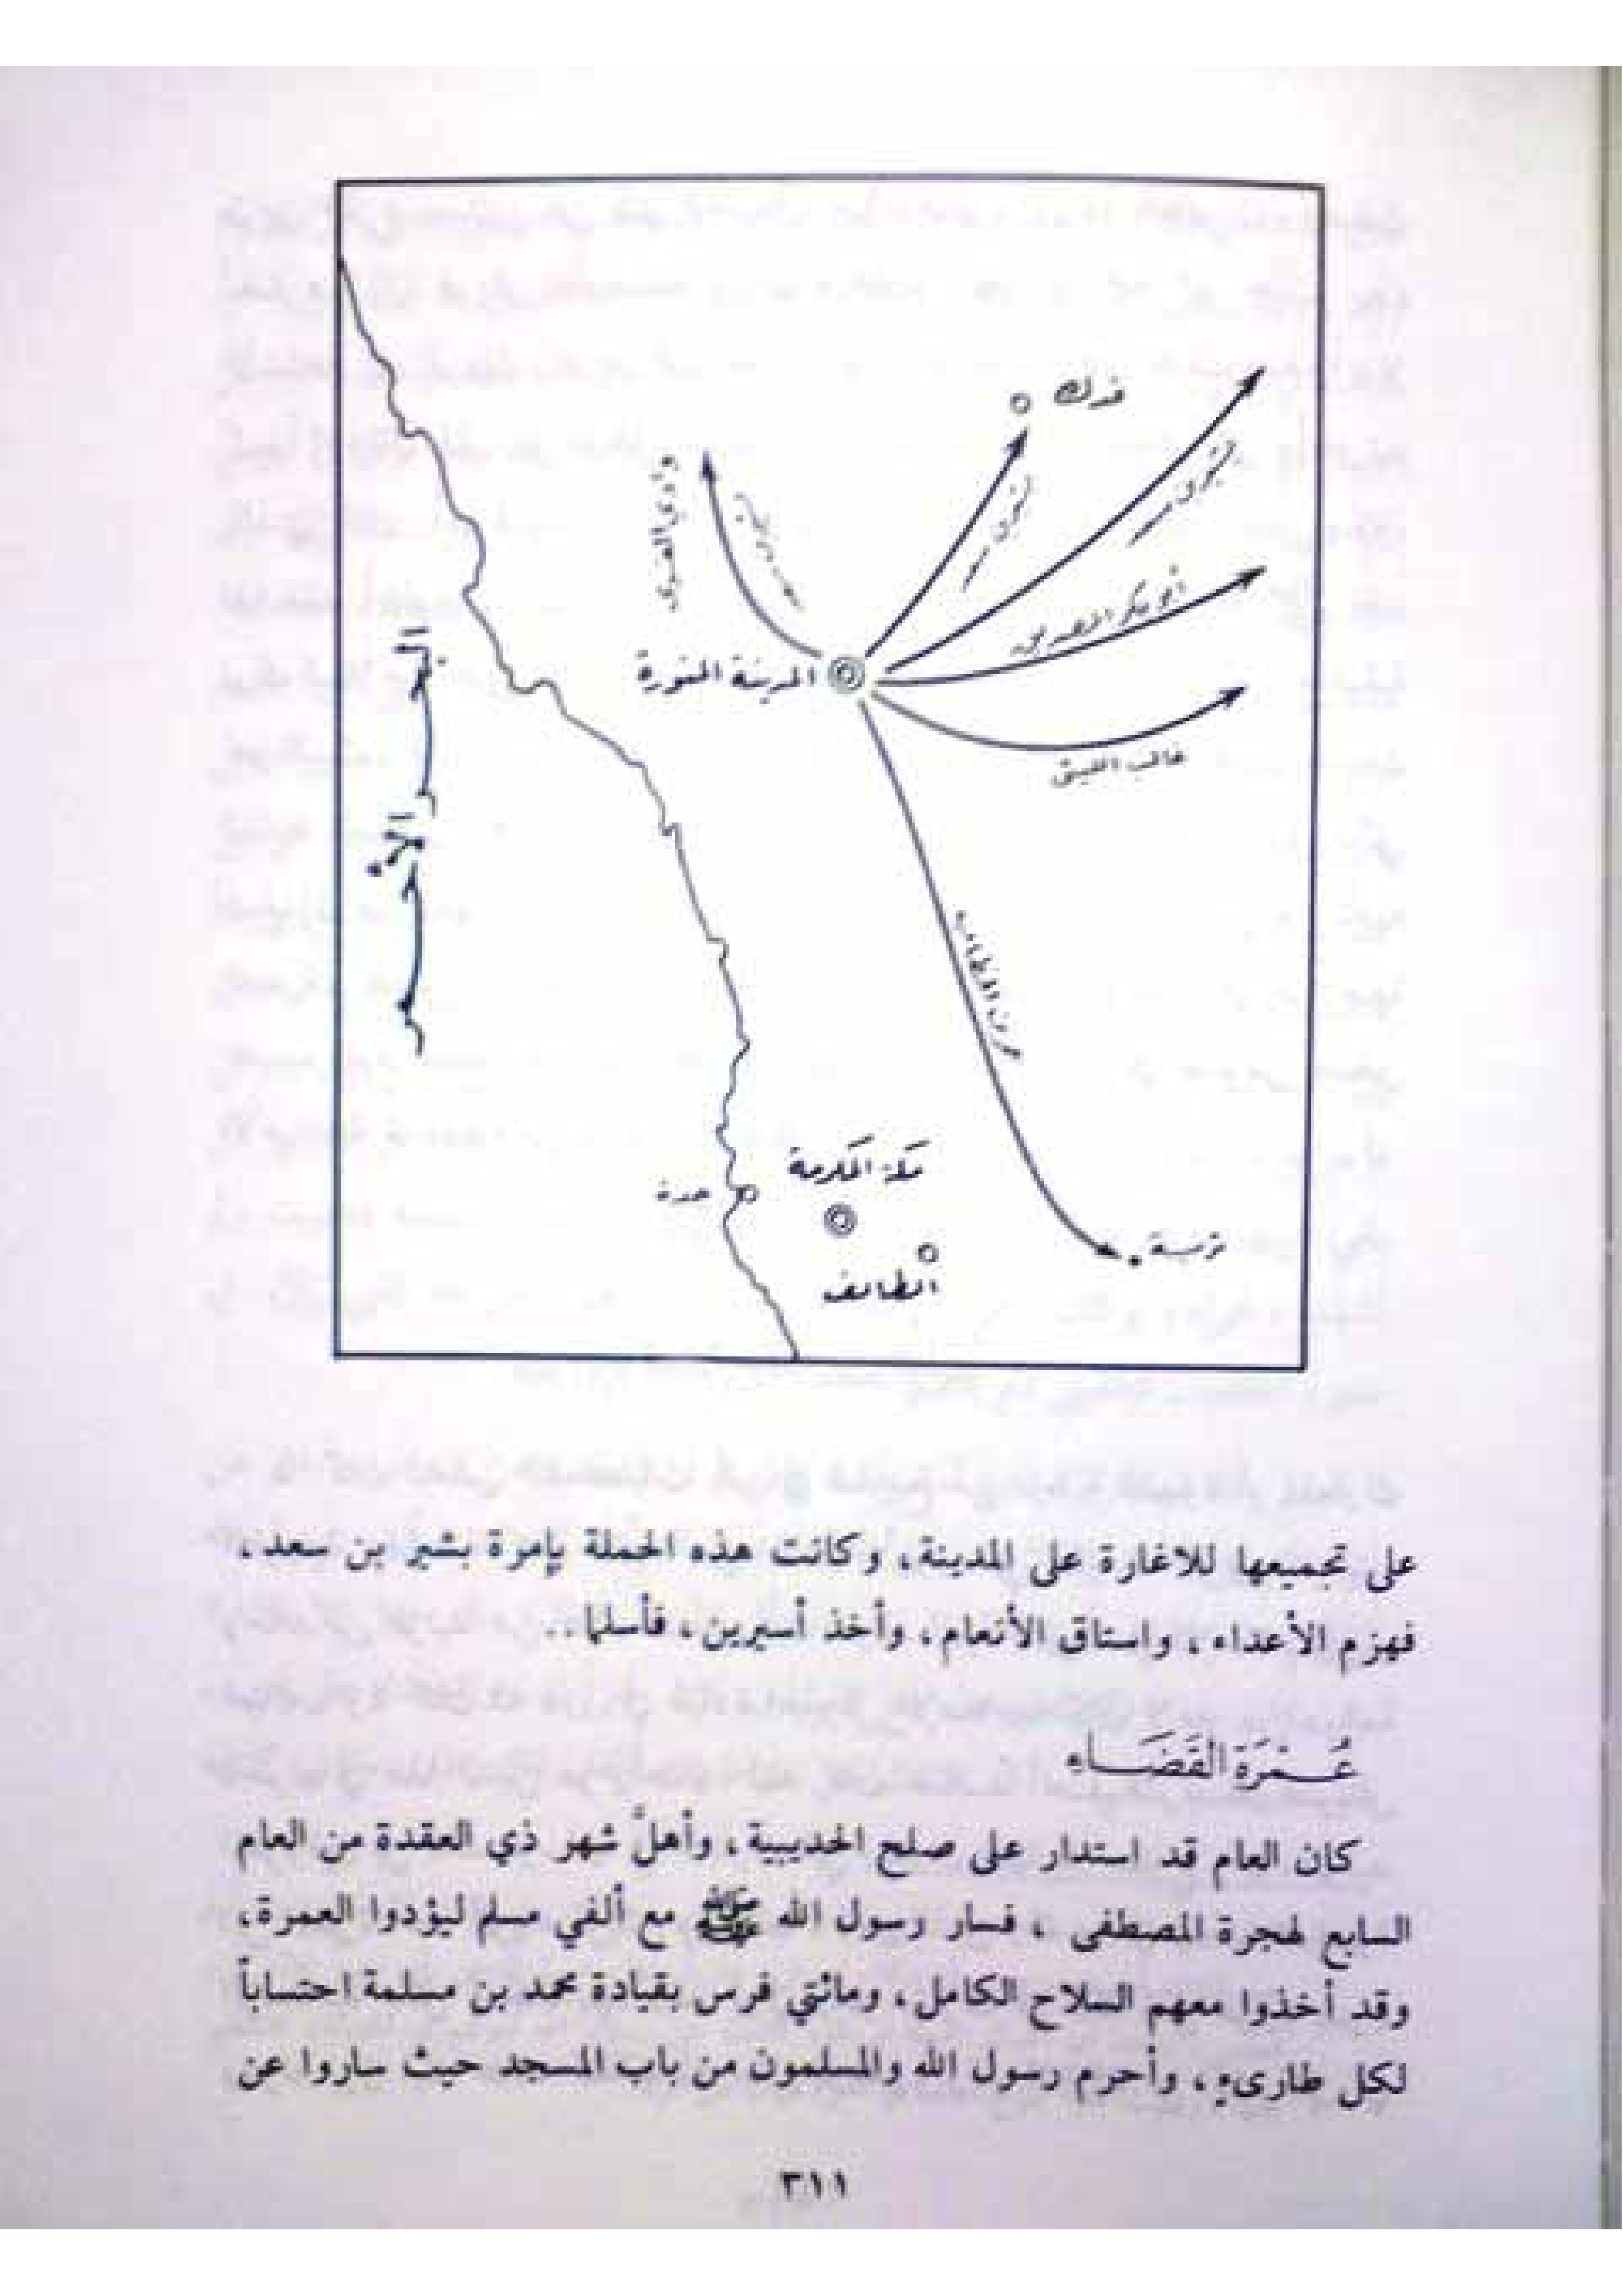 فدك
بشير بن سعد
بشير بن سعد
وادي القرى
أبو بكر الصديق
المدينة المنورة
غالب الليثي
البحر الأحمر
عمر بن الخطاب
مكة المكرمة
جدة
تربة
الطائف
على تجميعها للاغارة على المدينة، وكانت هذه الحملة بإمرة بشير بن سعد،
فهزم الأعداء، واستاق الأنعام، وأخذ أسيرين، فأسلما..
عُمْرَة القَضَاء
كان العام قد استدار على صلح الحديبية، وأهلَّ شهر ذي العقدة من العام
السابع لهجرة المصطفى، فسار رسول الله ﷺ مع ألفي مسلم ليؤدوا العمرة،
وقد أخذوا معهم السلاح الكامل، ومائتي فرس بقيادة محمد بن مسلمة احتساباً
لكل طارىء، وأحرم رسول الله والمسلمون من باب المسجد حيث ساروا عن
٣١١